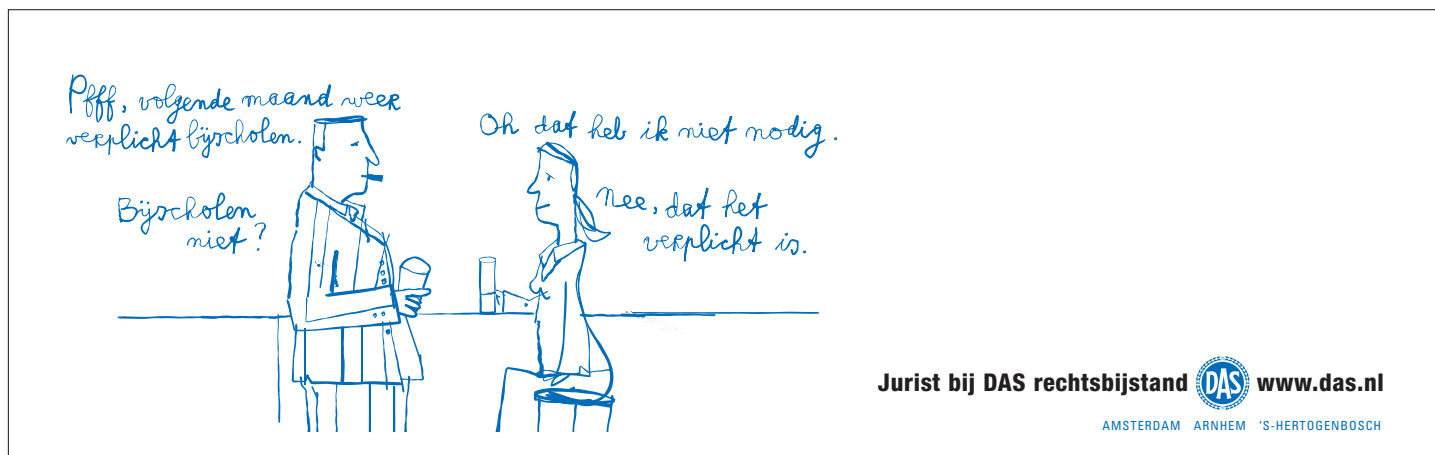 Pfff, volgende maand weer
verplicht bijscholen.
Oh dat heb ik niet nodig.
Bijscholen
niet?
Nee, dat het
verplicht is.
Jurist bij DAS rechtsbijstand DAS www.das.nl
AMSTERDAM ARNHEM 'S-HERTOGENBOSCH